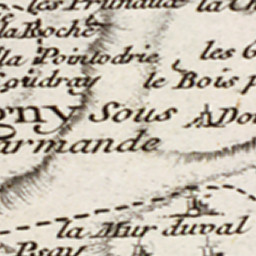 les Prunaux la Ch
la Roche
la Pointodrie les G
Coudray le Bois p
gny Sous Dou
armande
la Mur duval
Psay